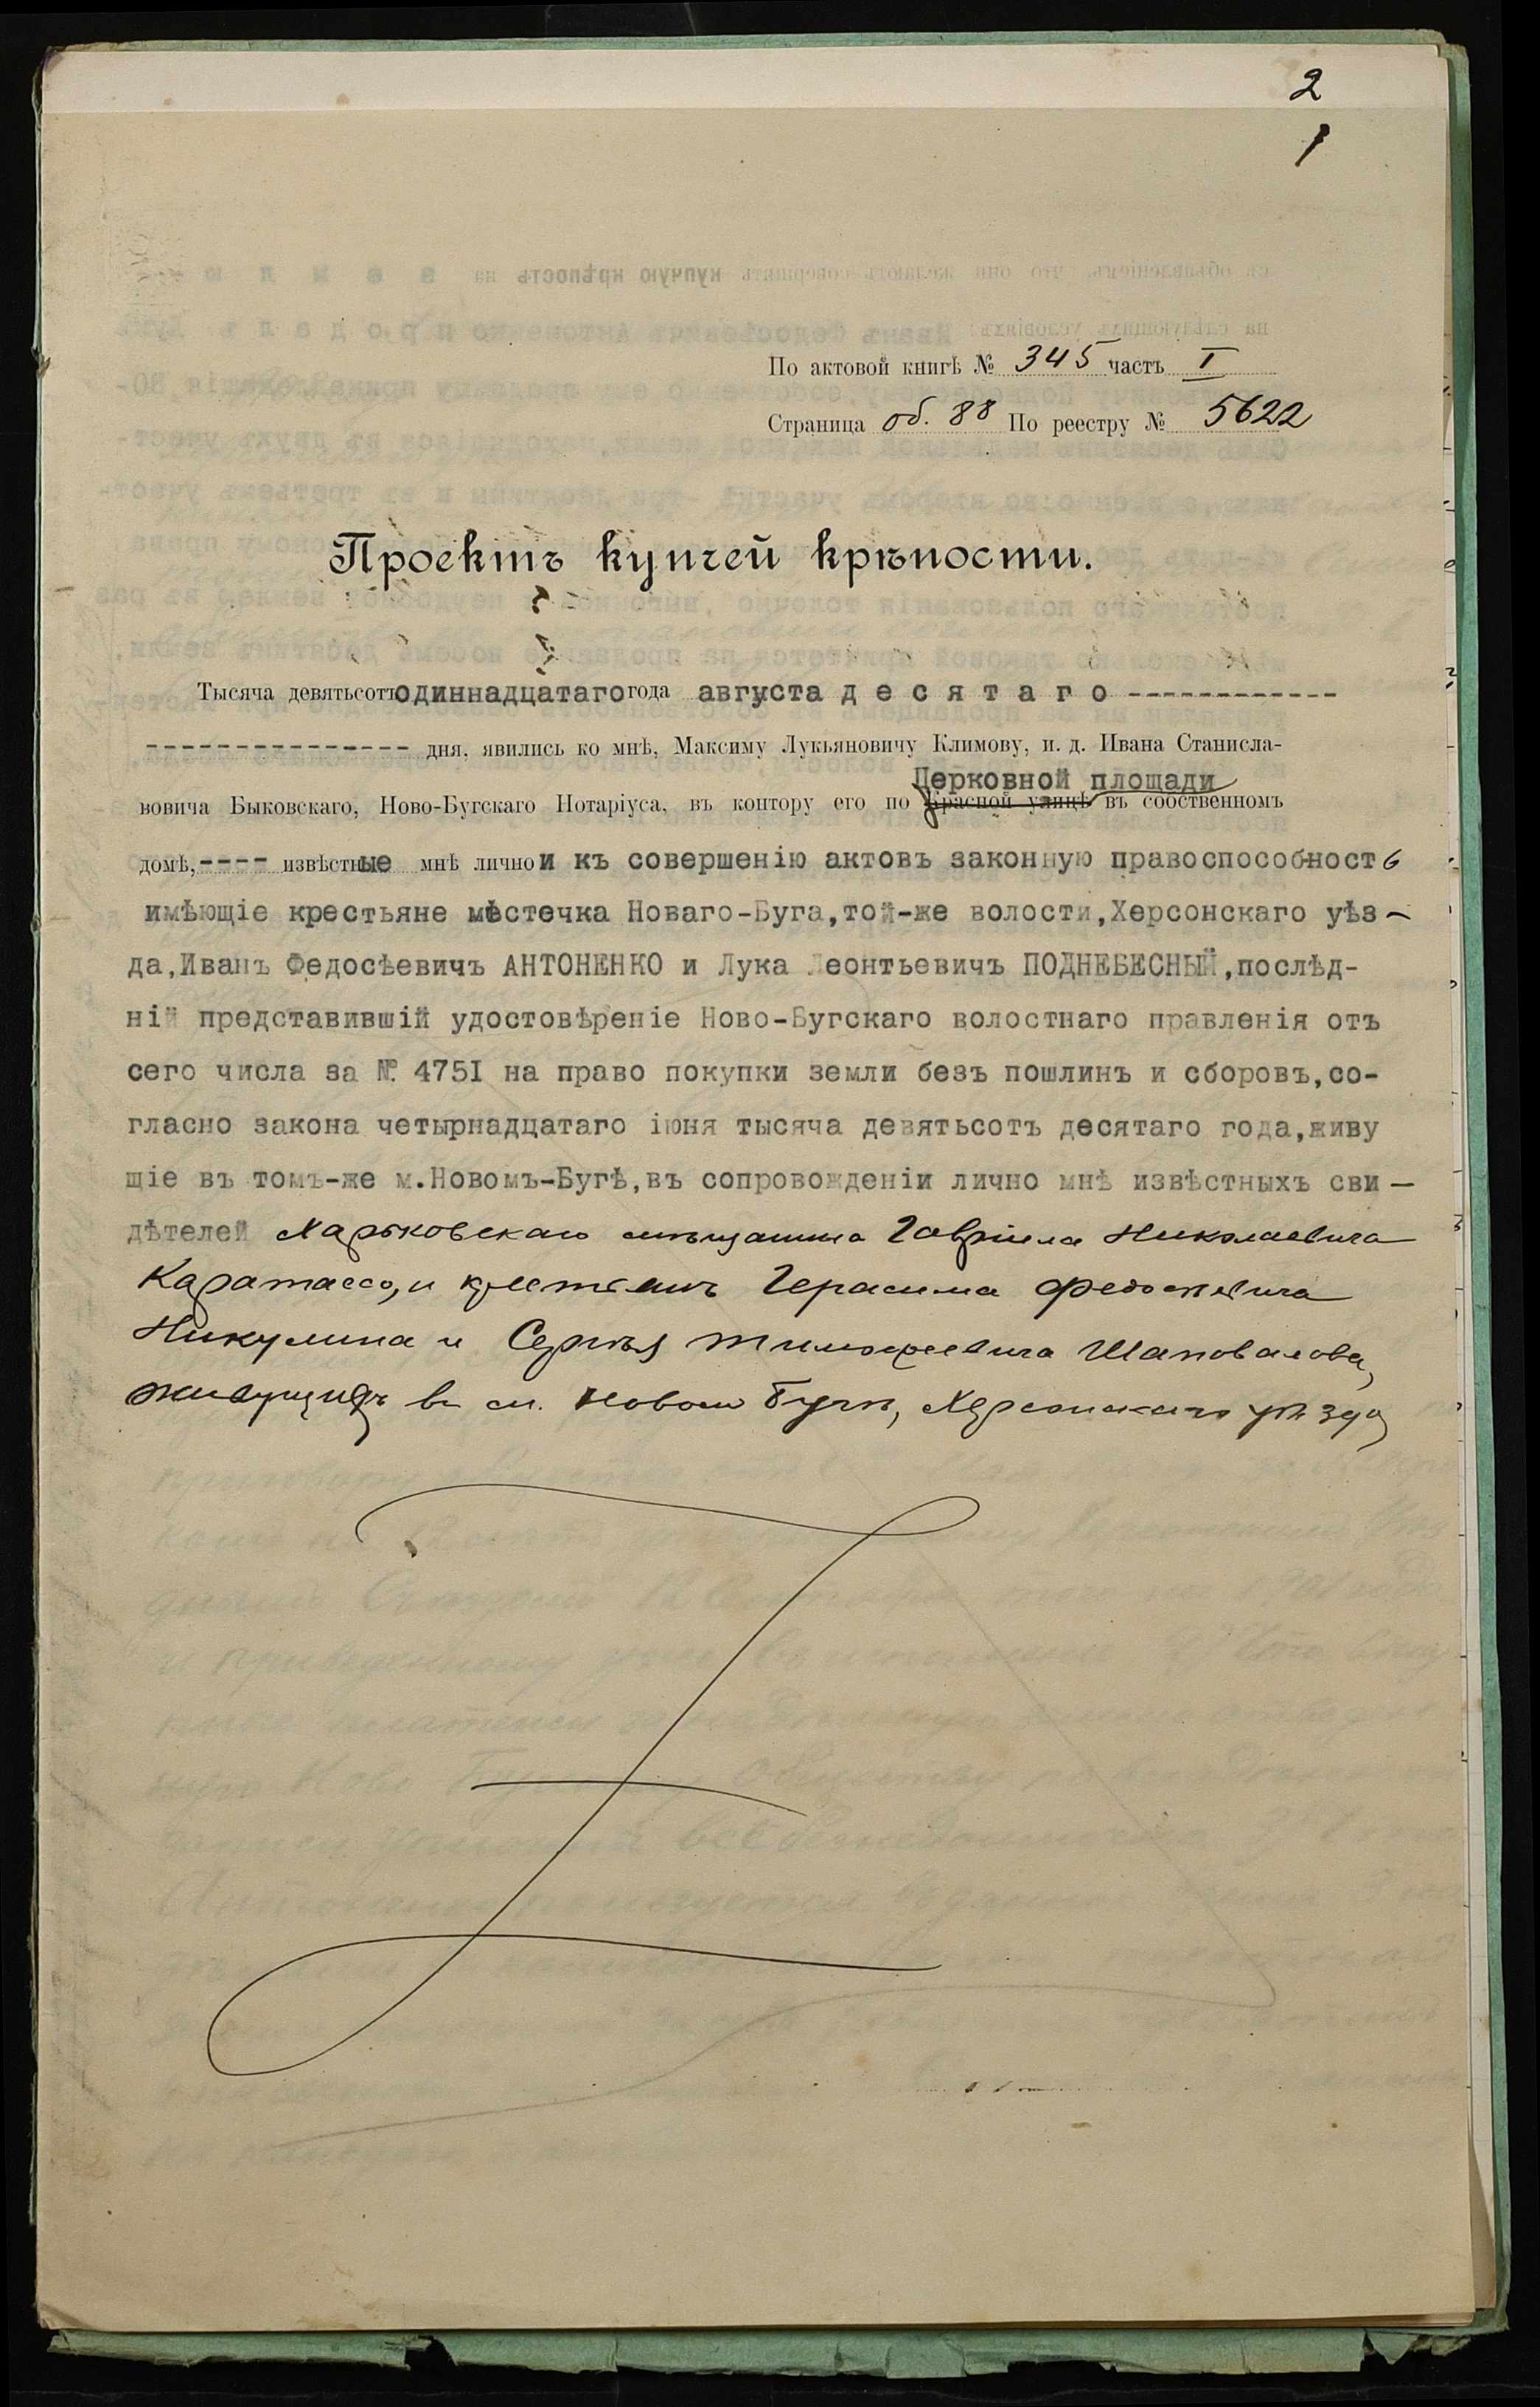 2
1
По актовой книгѣ № 345 часть I
Страница об. 88 По реестру № 5622
Проектъ купчей крѣпости.
Тысяча девятьсотъ одиннадцатаго года августа д е с я т а г о ------------
--------------- дня, явились ко мнѣ, Максиму Лукьяновичу Климову, и. д. Ивана Станисла-
Церковной площади
вовича Быковскаго, Ново-Бугскаго Нотаріуса, въ контору его по Красной улицѣ въ собственномъ
домѣ,---- извѣстные мнѣ лично и къ совершенію актовъ законную правоспособность
имѣющіе крестьяне мѣстечка Новаго-Буга,той-же волости,Херсонскаго уѣз-
да,Иванъ Федосѣевичъ АНТОНЕНКО и Лука Леонтьевичъ ПОДНЕБЕСНЫЙ,послѣд-
ній представившій удостовѣреніе Ново-Бугскаго волостнаго правленія отъ
сего числа за № 475I на право покупки земли безъ пошлинъ и сборовъ,со-
гласно закона четырнадцатаго іюня тысяча девятьсотъ десятаго года,живу
щіе въ томъ-же м.Новомъ-Бугѣ,въ сопровожденіи лично мнѣ извѣстныхъ сви-
дѣтелей Харьковскаго мѣщанина Гавріила Николаевича
Каратассо, и крестьянъ Герасима Федосѣевича
Никулина и Сергѣя Тимофеевича Шаповалова,
живущихъ въ м. Новом Бугѣ, Херсонскаго уѣзда